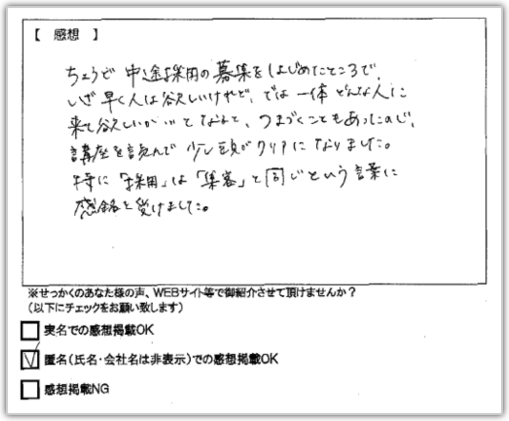 【 感想 】
ちょうど 中途採用の募集をはじめたところで、
いざ 早く人は欲しいけれど、では 一体 どんな人に
来て欲しいか…となると、つまづくこともあったので、
講座を読んで 少し頭が クリアに なりました。
特に 「採用」は 「集客」と 同じという 言葉に
感銘を受けました。
※せっかくのあなた様の声、WEBサイト等で御紹介させて頂けませんか？
（以下にチェックをお願い致します）
実名での感想掲載OK
匿名（氏名・会社名は非表示）での感想掲載OK
感想掲載NG